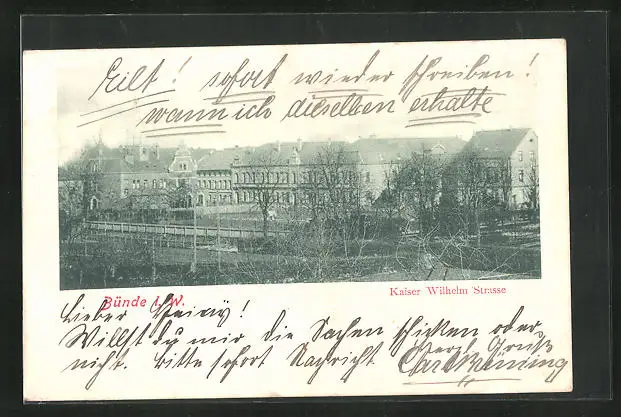 Eilt! sofort wieder schreiben!
wann ich dieselben erhalte
Kaiser Wilhelm Strasse
Bünde i. W.
Lieber Heiny!
Willst du mir die Sachen schicken oder
nicht. Bitte sofort Nachricht
Gruß
Carl